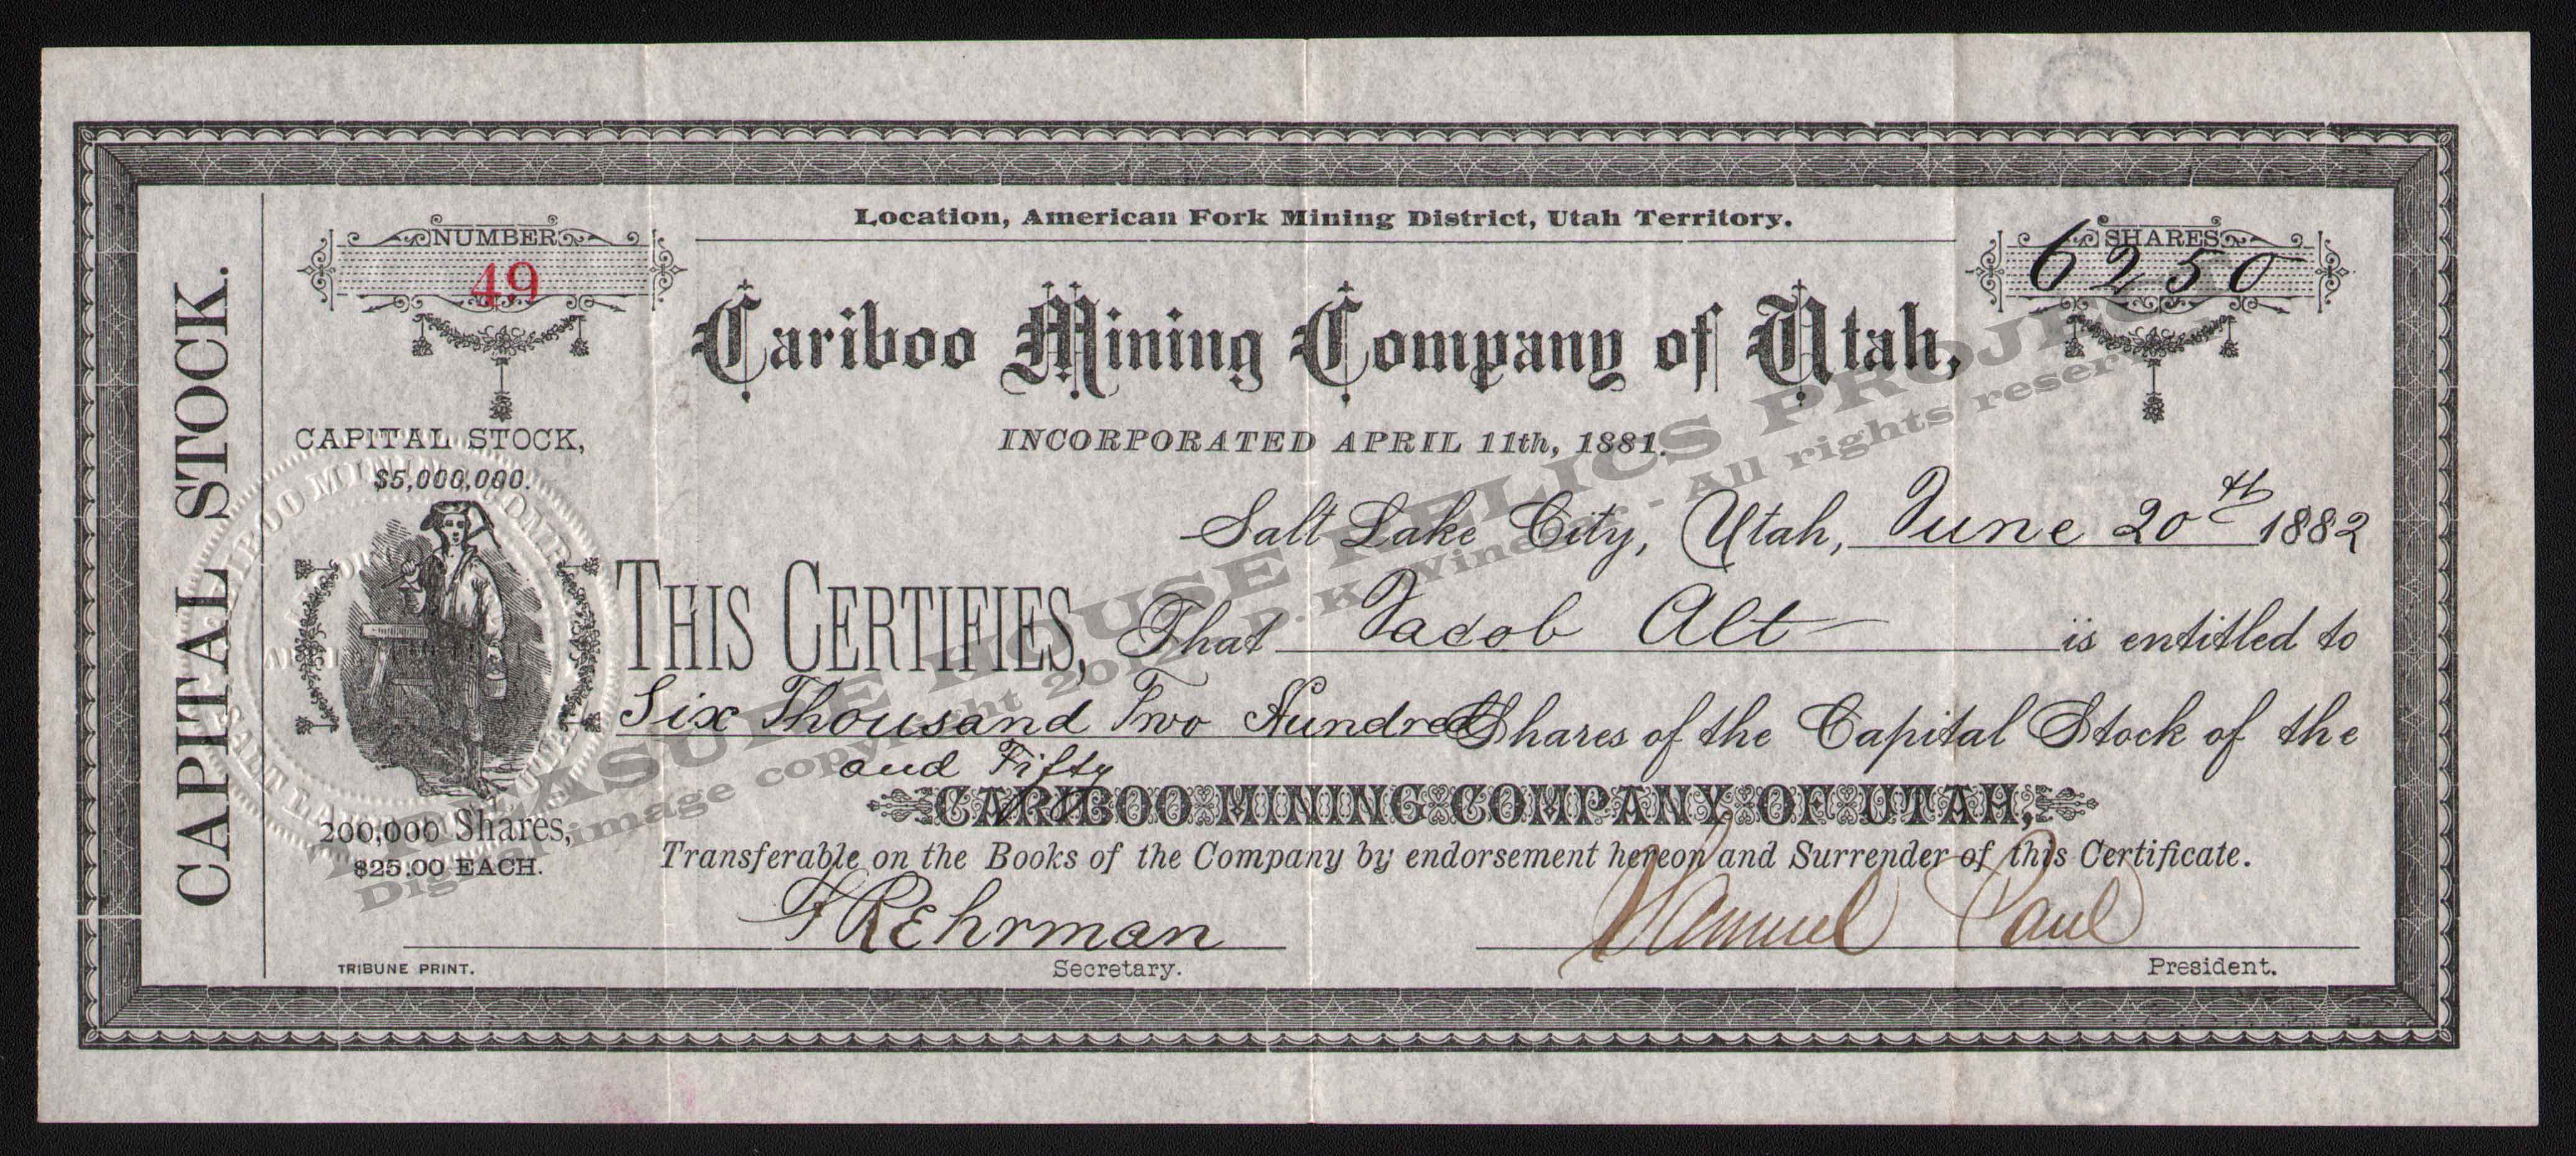 Location, American Fork Mining District, Utah Territory.
NUMBER
49
SHARES
6250
Cariboo Mining Company of Utah,
INCORPORATED APRIL 11th, 1881.
CAPITAL STOCK.
CAPITAL STOCK,
$5,000,000.
Salt Lake City, Utah, June 20th 1882
THIS CERTIFIES, That Jacob Alt is entitled to
Six Thousand Two Hundred Shares of the Capital Stock of the
and Fifty
CARIBOO MINING COMPANY OF UTAH,
200,000 Shares,
$25.00 EACH.
Transferable on the Books of the Company by endorsement hereon and Surrender of this Certificate.
Ehrman
Samuel Paul
TRIBUNE PRINT.
Secretary.
President.
TREASURE HOUSE RELICS PROJECT
Digital image copyright 2012 D. K. - All rights reserved